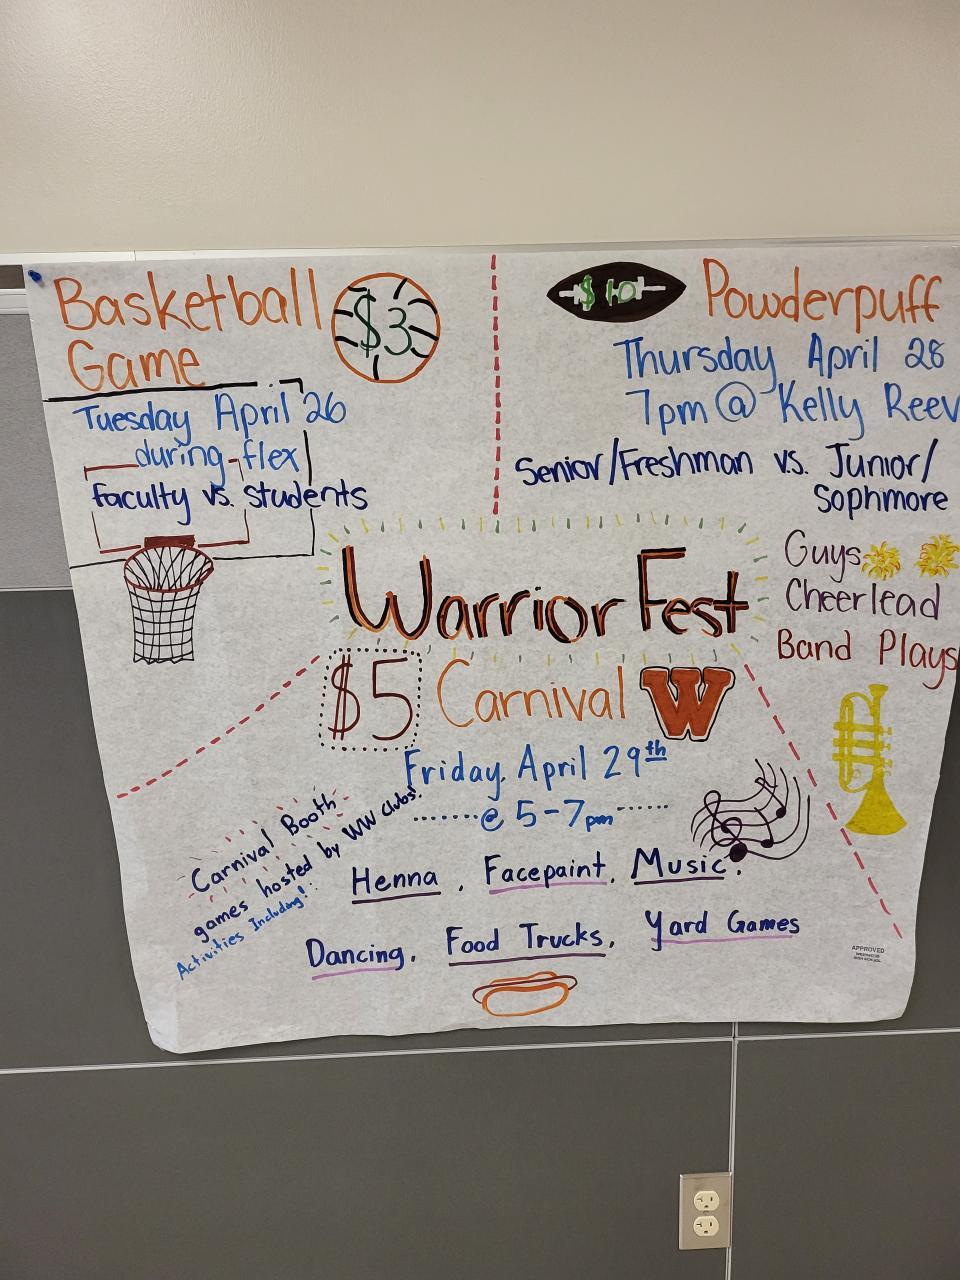 Basketball
Game
$3
Tuesday April 26
during flex
faculty vs. students
$10
Powderpuff
Thursday April 28
7pm @ Kelly Reev
Senior/Freshman vs. Junior/
Sophmore
Guys
Cheerlead
Band Plays
Warrior Fest
$5 Carnival W
Friday, April 29th
@ 5-7pm
Carnival Booth
games hosted by WW clubs!
Activities Including!
Henna, Facepaint, Music,
Dancing, Food Trucks, Yard Games
APPROVED
HIGH SCHOOL